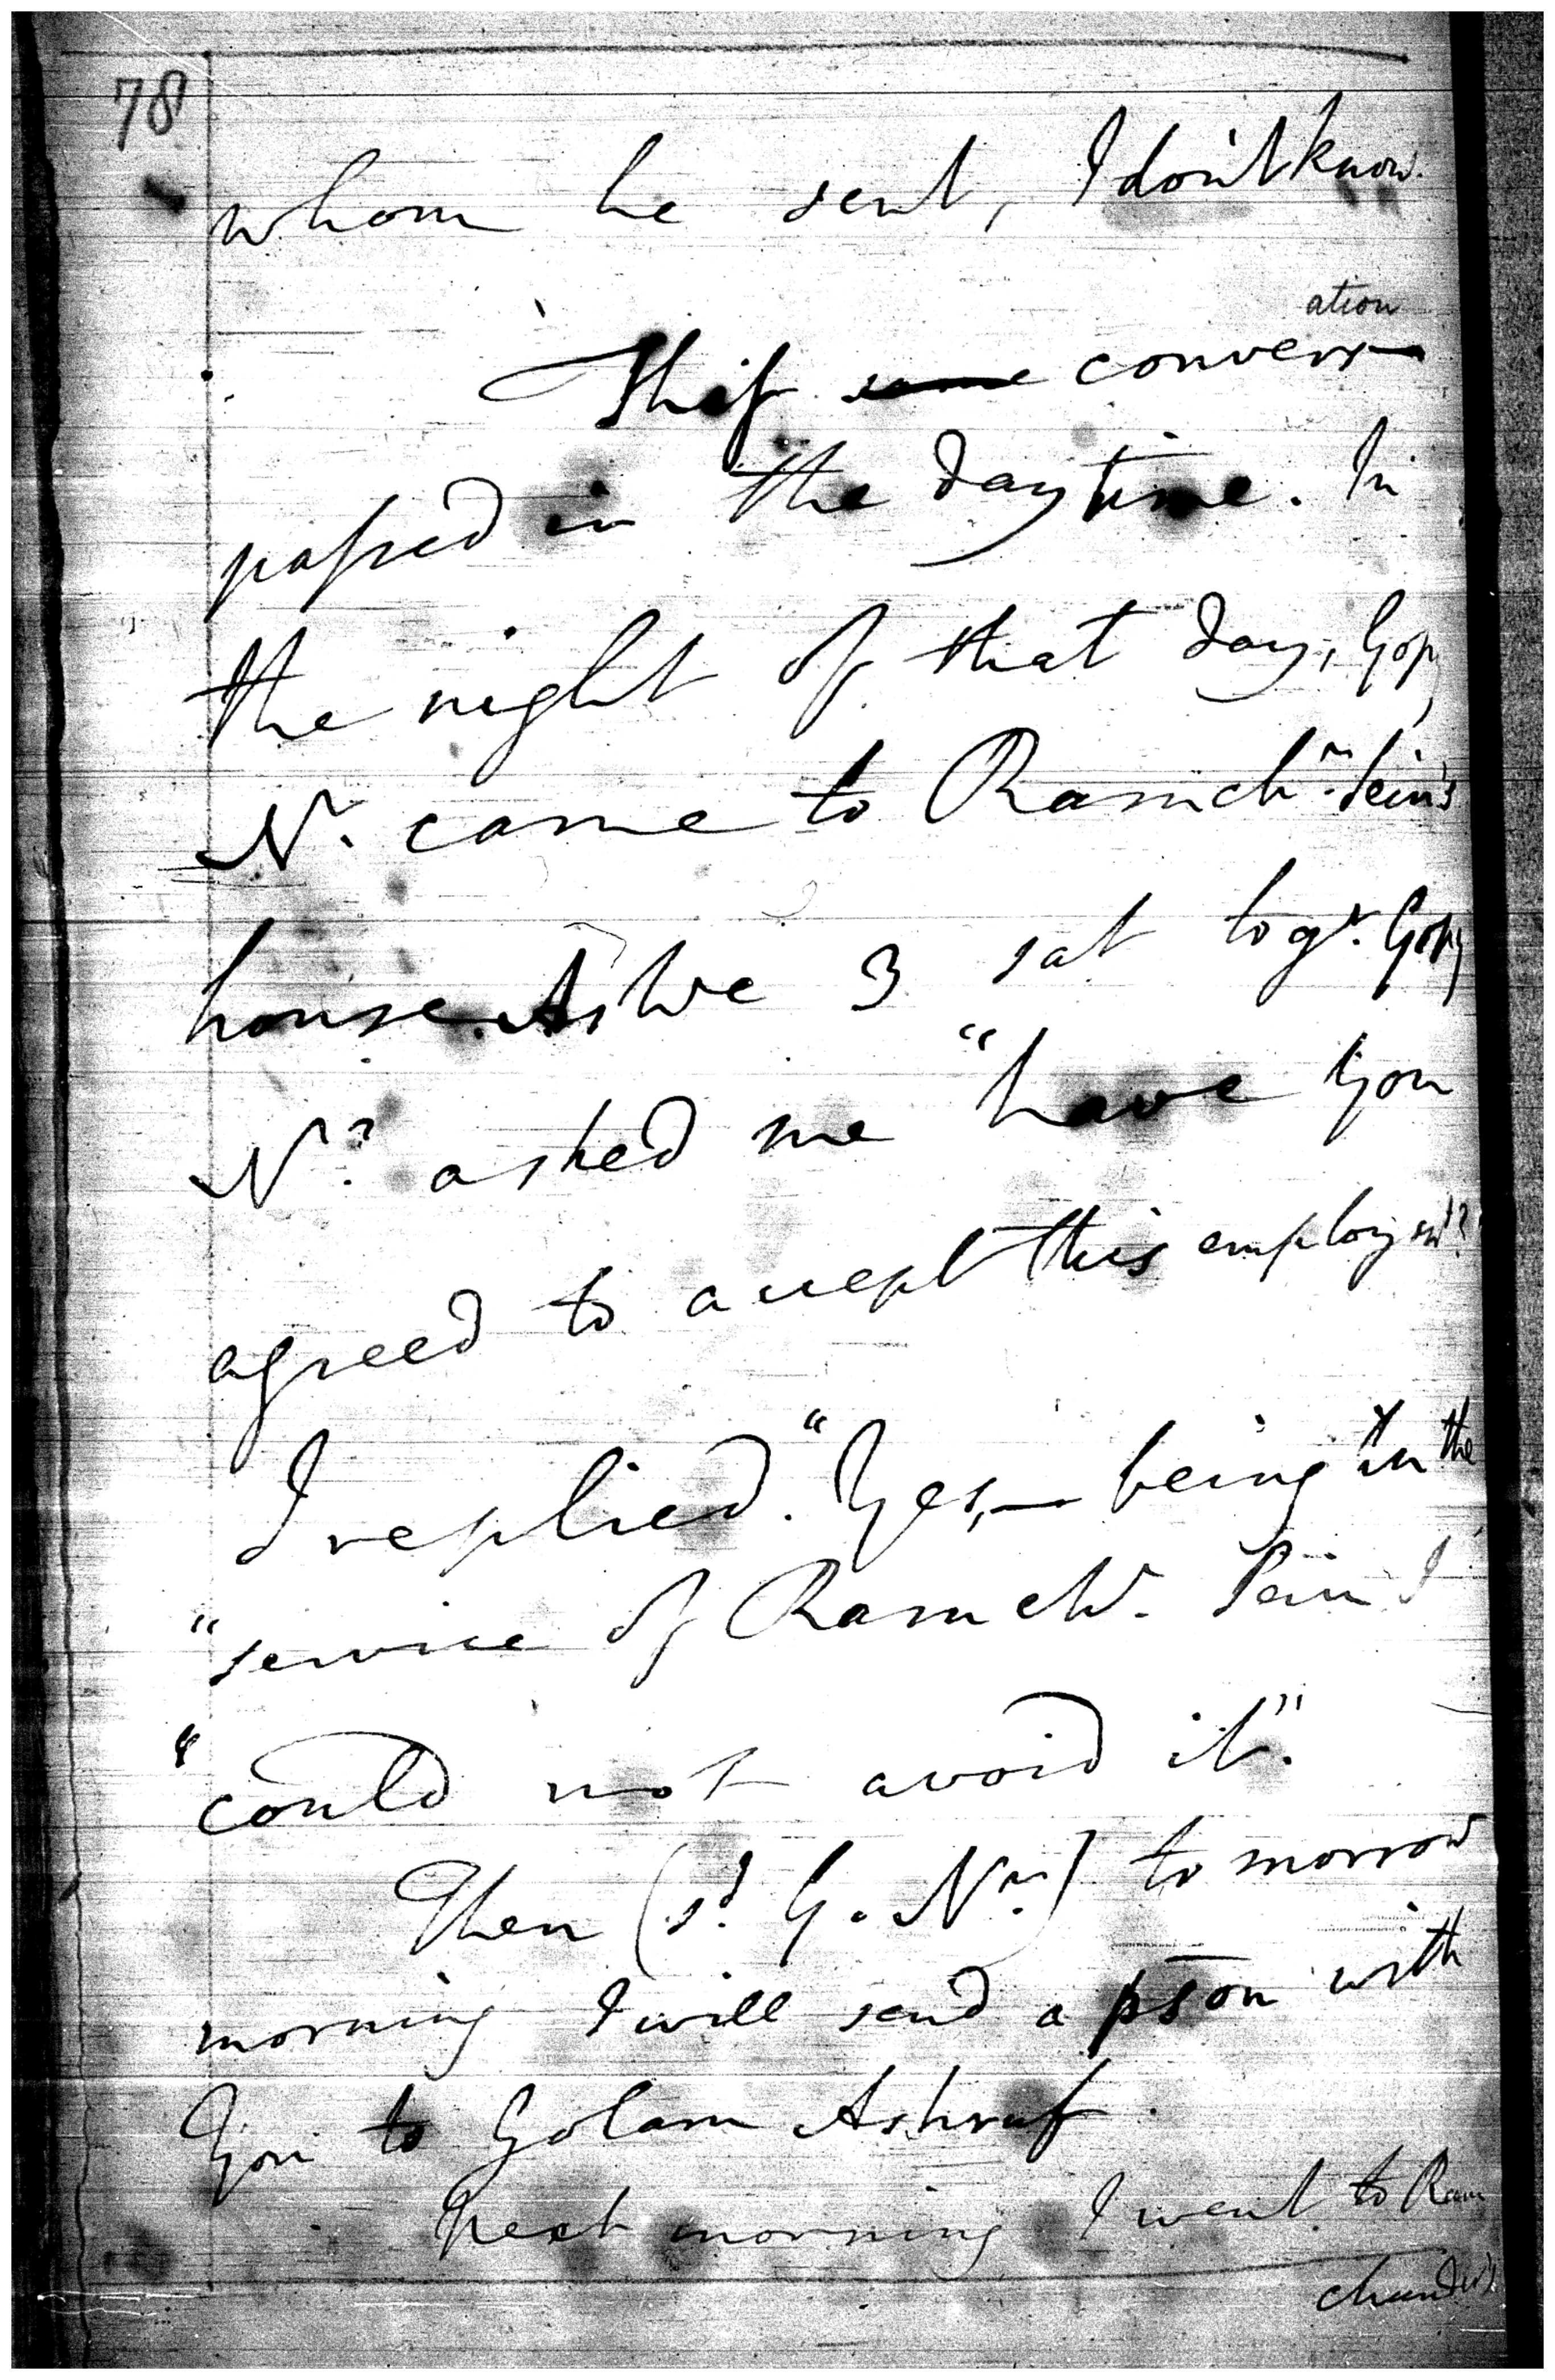 78
whom he sent, I don't know.
ation
This some convers
passed in the day time. In
the night of that day, Gopy
Nr. came to Ramchr. Sein's
house. As We 3 sat togr. Gopy
Nr. asked me "have You
agreed to accept this employmt?
I replied. "Yes, — being in the
"service of Ramchr. Sein I
"could not avoid it".
Then (sd. G. Nn.) to morrow
morning I will send a pson with
You to Golam Ashruf.
Next morning I went to Ram
chunder's